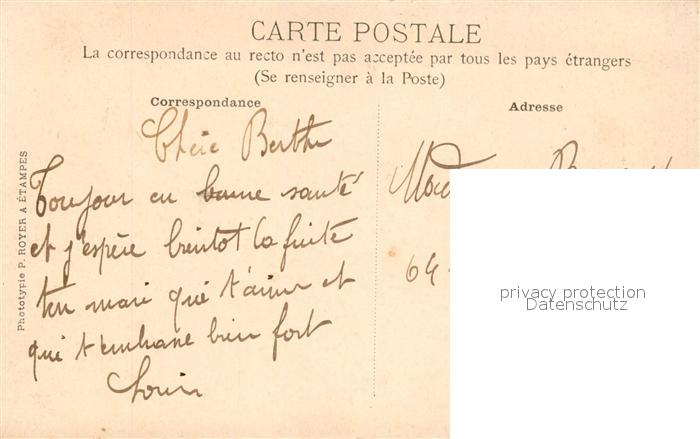 CARTE POSTALE
La correspondance au recto n'est pas acceptée par tous les pays étrangers
(Se renseigner à la Poste)
Correspondance
Adresse
Chère Berthe
Toujour en bonne santé
et j'espère bientot la fuite
ton mari qui t'aime et
qui t'embrase bien fort
Louis
64
Phototypie P. ROYER A ÉTAMPES
privacy protection
Datenschutz